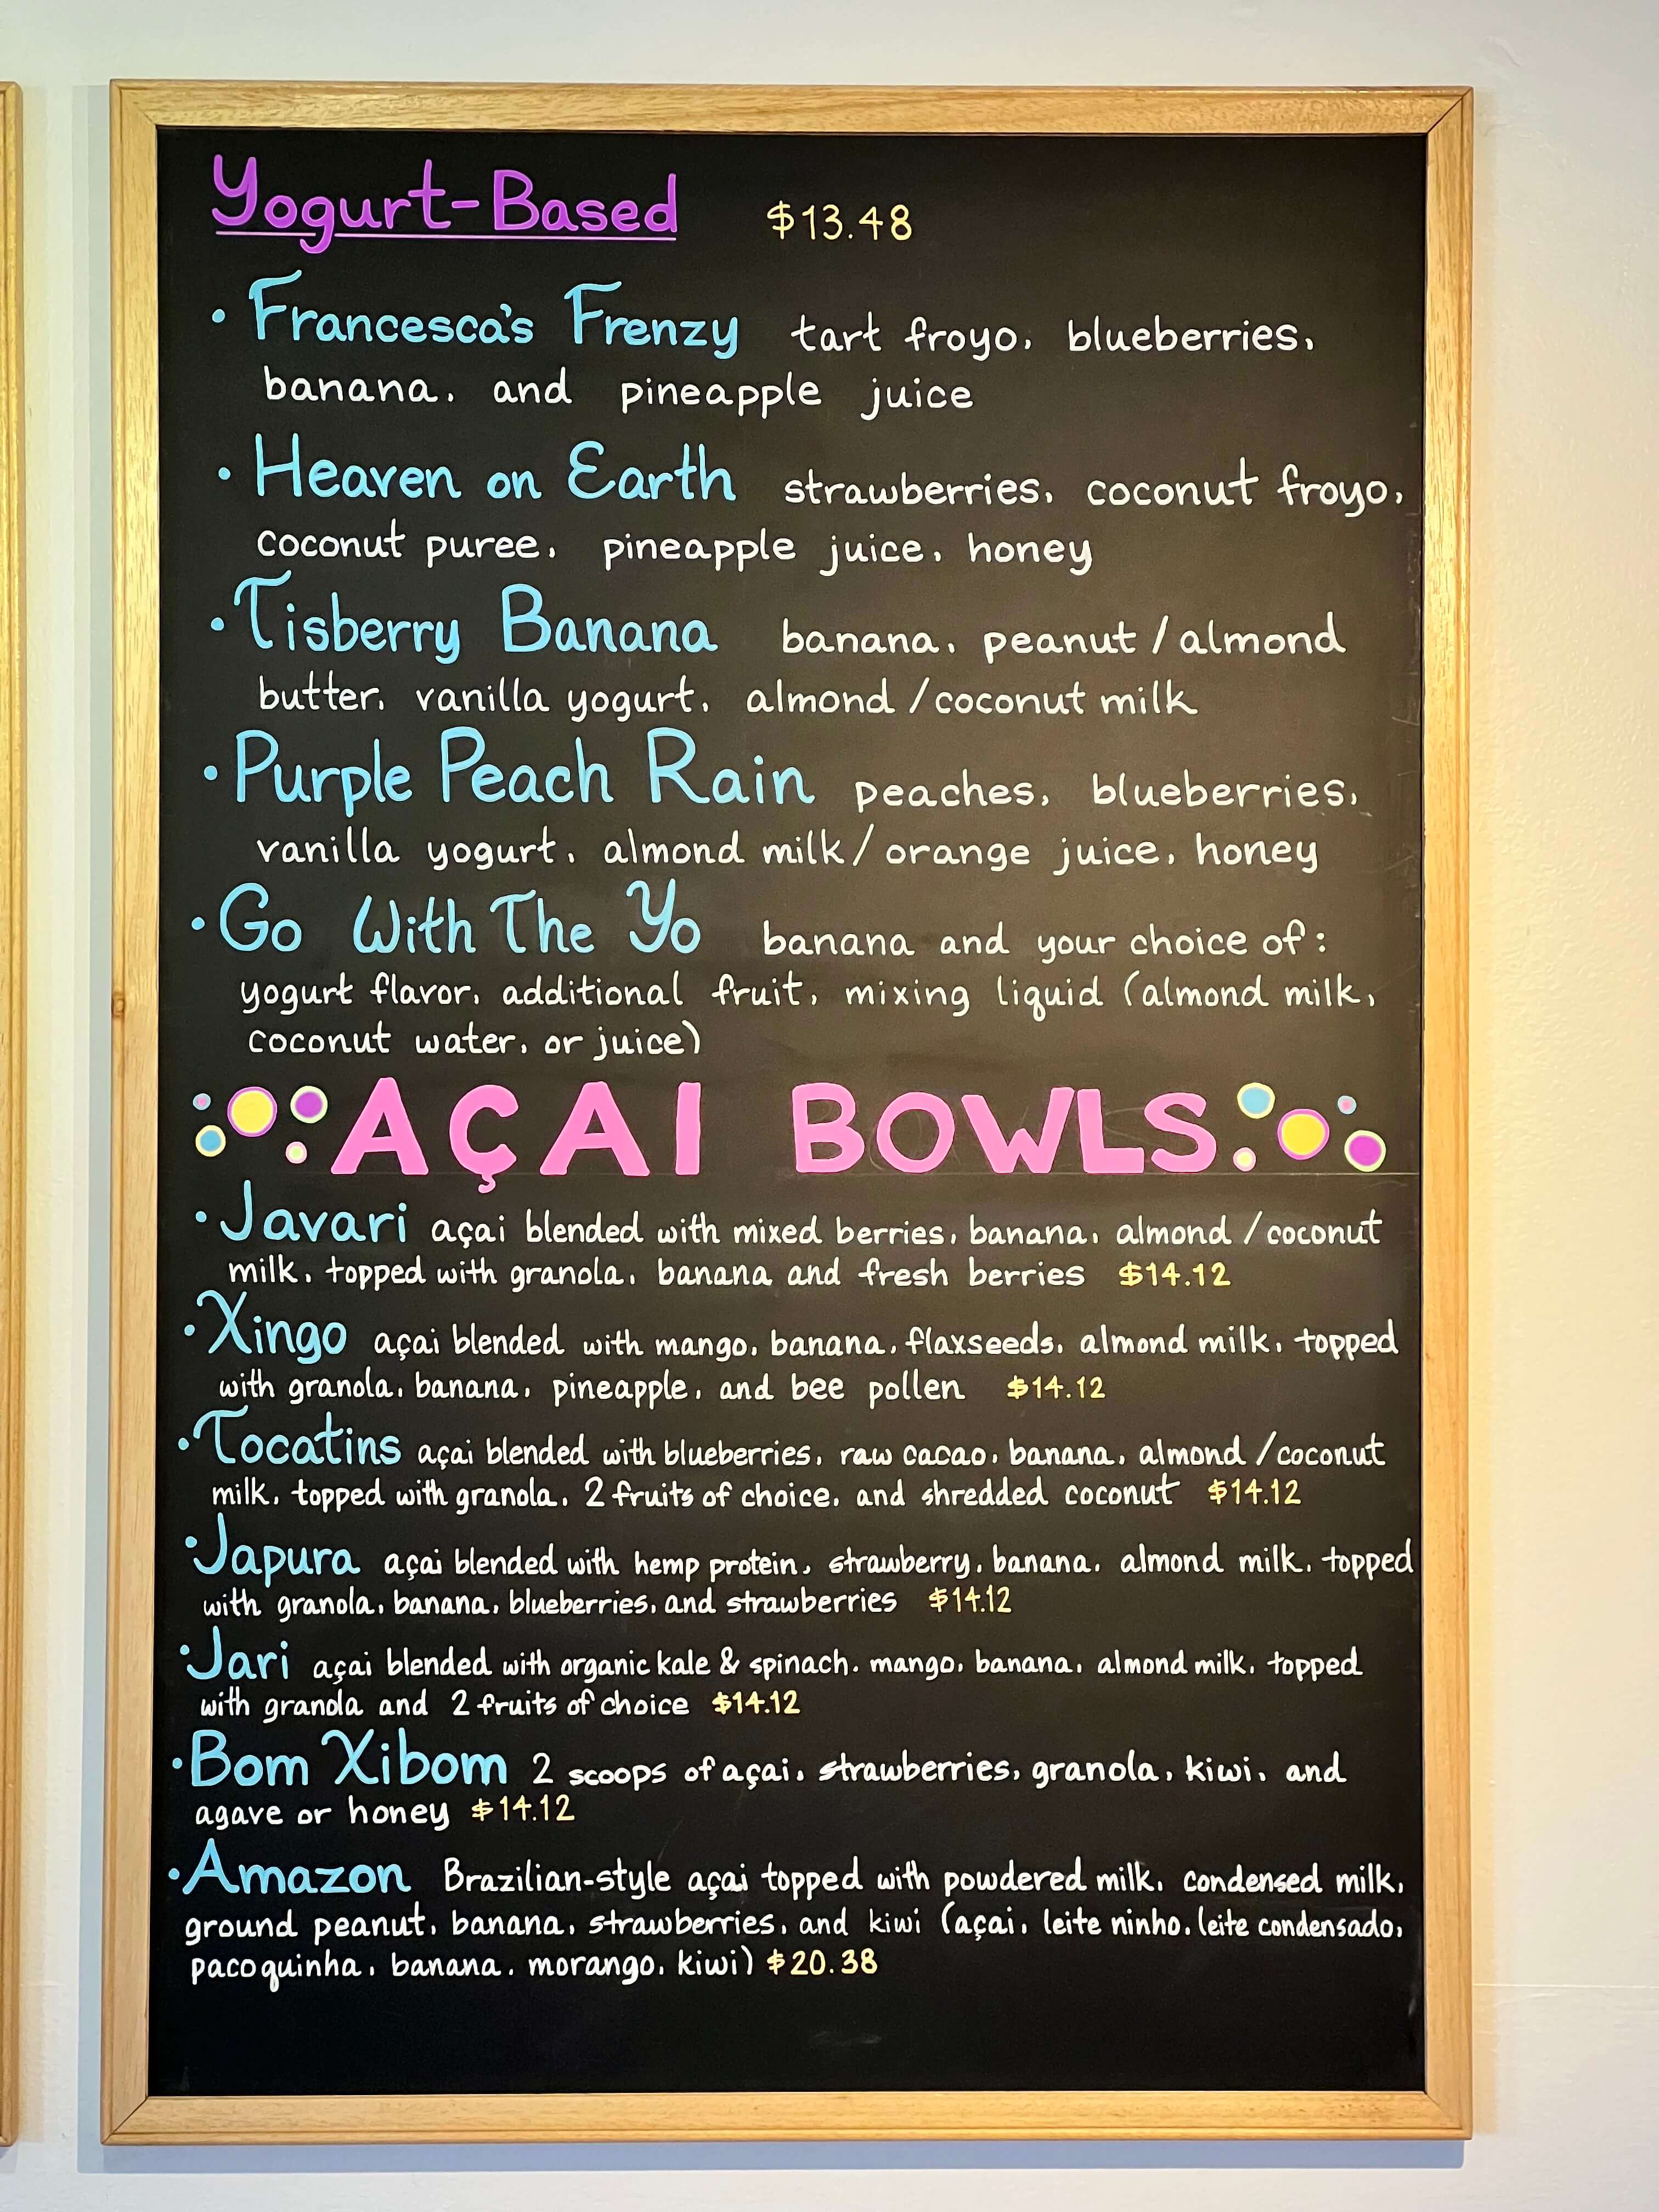 Yogurt-Based $13.48
• Francesca's Frenzy tart froyo, blueberries,
banana, and pineapple juice
• Heaven on Earth strawberries, coconut froyo,
coconut puree, pineapple juice, honey
• Tisberry Banana banana, peanut / almond
butter, vanilla yogurt, almond / coconut milk
• Purple Peach Rain peaches, blueberries,
vanilla yogurt, almond milk / orange juice, honey
• Go With The Yo banana and your choice of:
yogurt flavor, additional fruit, mixing liquid (almond milk,
coconut water, or juice)
AÇAI BOWLS
• Javari açai blended with mixed berries, banana, almond / coconut
milk, topped with granola, banana and fresh berries $14.12
• Xingo açai blended with mango, banana, flaxseeds, almond milk, topped
with granola, banana, pineapple, and bee pollen $14.12
• Tocatins açai blended with blueberries, raw cacao, banana, almond / coconut
milk, topped with granola, 2 fruits of choice, and shredded coconut $14.12
• Japura açai blended with hemp protein, strawberry, banana, almond milk, topped
with granola, banana, blueberries, and strawberries $14.12
• Jari açai blended with organic kale & spinach, mango, banana, almond milk, topped
with granola and 2 fruits of choice $14.12
• Bom Xibom 2 scoops of açai, strawberries, granola, kiwi, and
agave or honey $14.12
• Amazon Brazilian-style açai topped with powdered milk, condensed milk,
ground peanut, banana, strawberries, and kiwi (açai, leite ninho, leite condensado,
pacoquinha, banana, morango, kiwi) $20.38